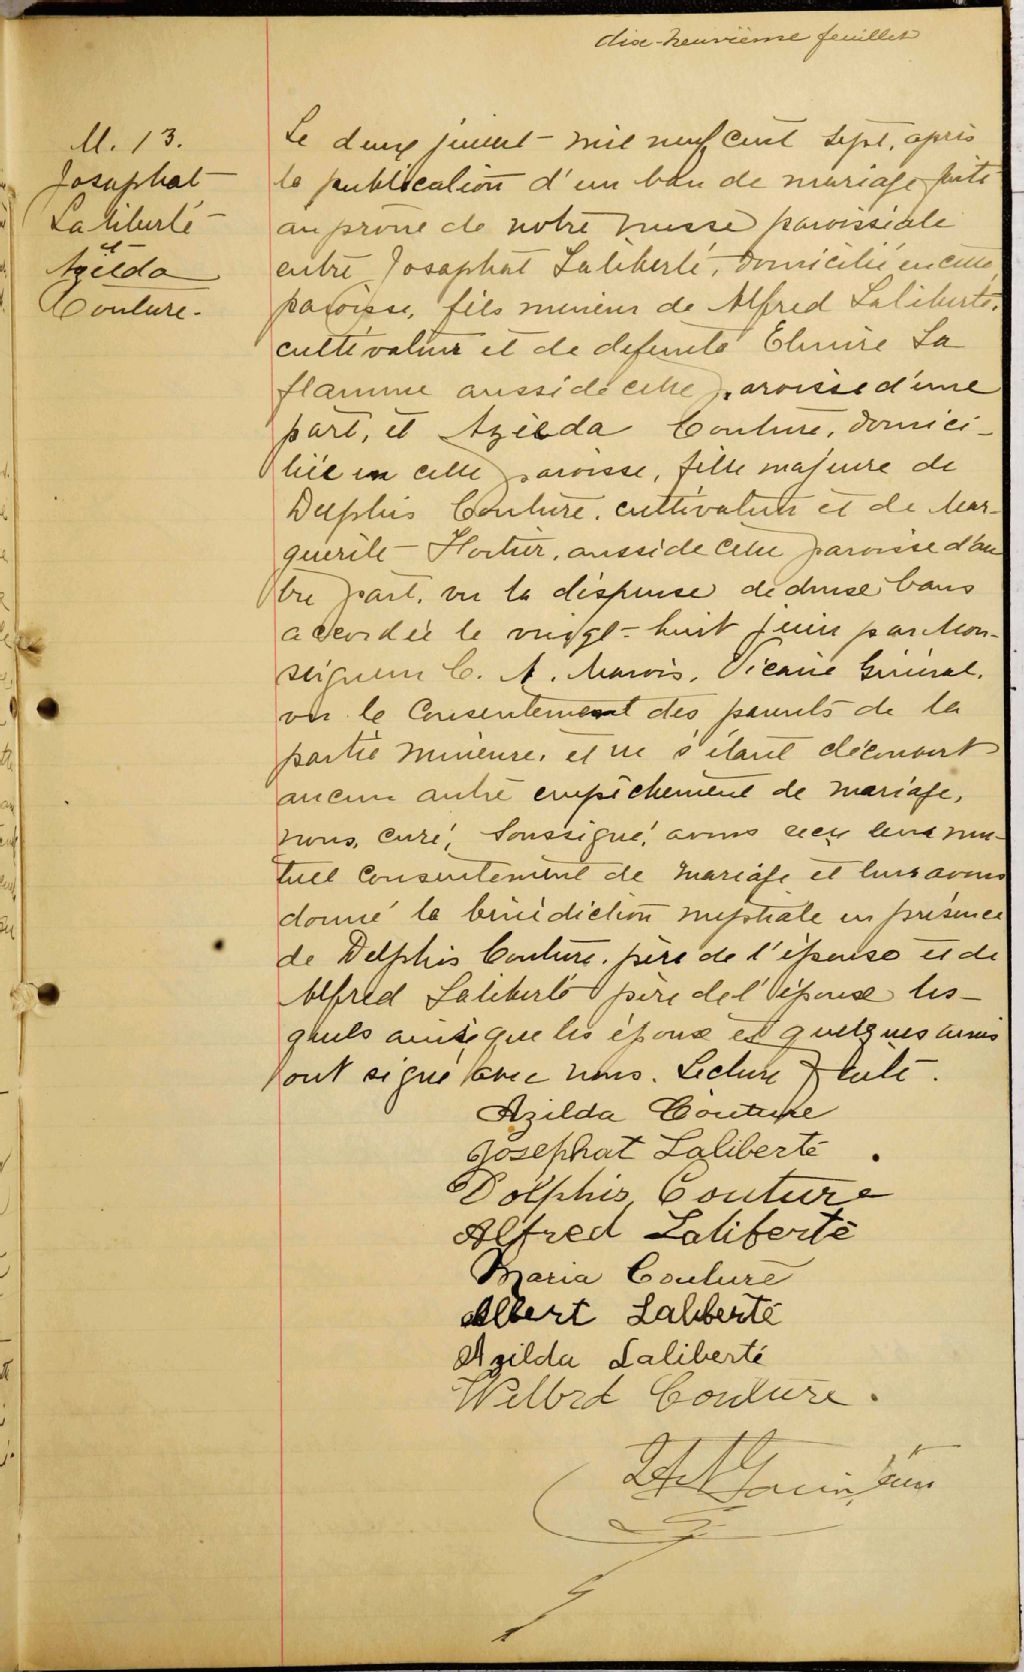 dix-neuvième feuillet
M. 13.
Josaphat
Laliberté
et
Azilda
Couture.
Le deux juillet mil neuf cent sept, après
la publication d'un ban de mariage faite
au prône de notre messe paroissiale
entre Josaphat Laliberté, domicilié en cette
paroisse, fils mineur de Alfred Laliberté,
cultivateur et de defunte Elmire La
flamme aussi de cette paroisse d'une
part, et Azilda Couture, domici-
liée en cette paroisse, fille majeure de
Delphis Couture, cultivateur et de Mar-
guerite aussi de cette paroisse d'au
tre part, vu la dispense de deux bans
accordée le vingt-huit juin par Mon-
seigneur C. A. Marois, Vicaire Général,
vu le consentement des parents de la
partie mineure, et ne s'étant découvert
aucun autre empêchement de mariage,
nous, curé, soussigné, avons reçu leur mu-
tuel consentement de mariage et leur avons
donné la bénédiction nuptiale en présence
de Delphis Couture, père de l'épouse et de
Alfred Laliberté père de l'époux les-
quels ainsi que les époux et quelques amis
ont signé avec nous. Lecture faite.
Azilda Couture
Josephat Laliberté
Dolphis Couture
Alfred Laliberté
Maria Couture
Albert Laliberté
Azilda Laliberté
Wilbrd Couture.